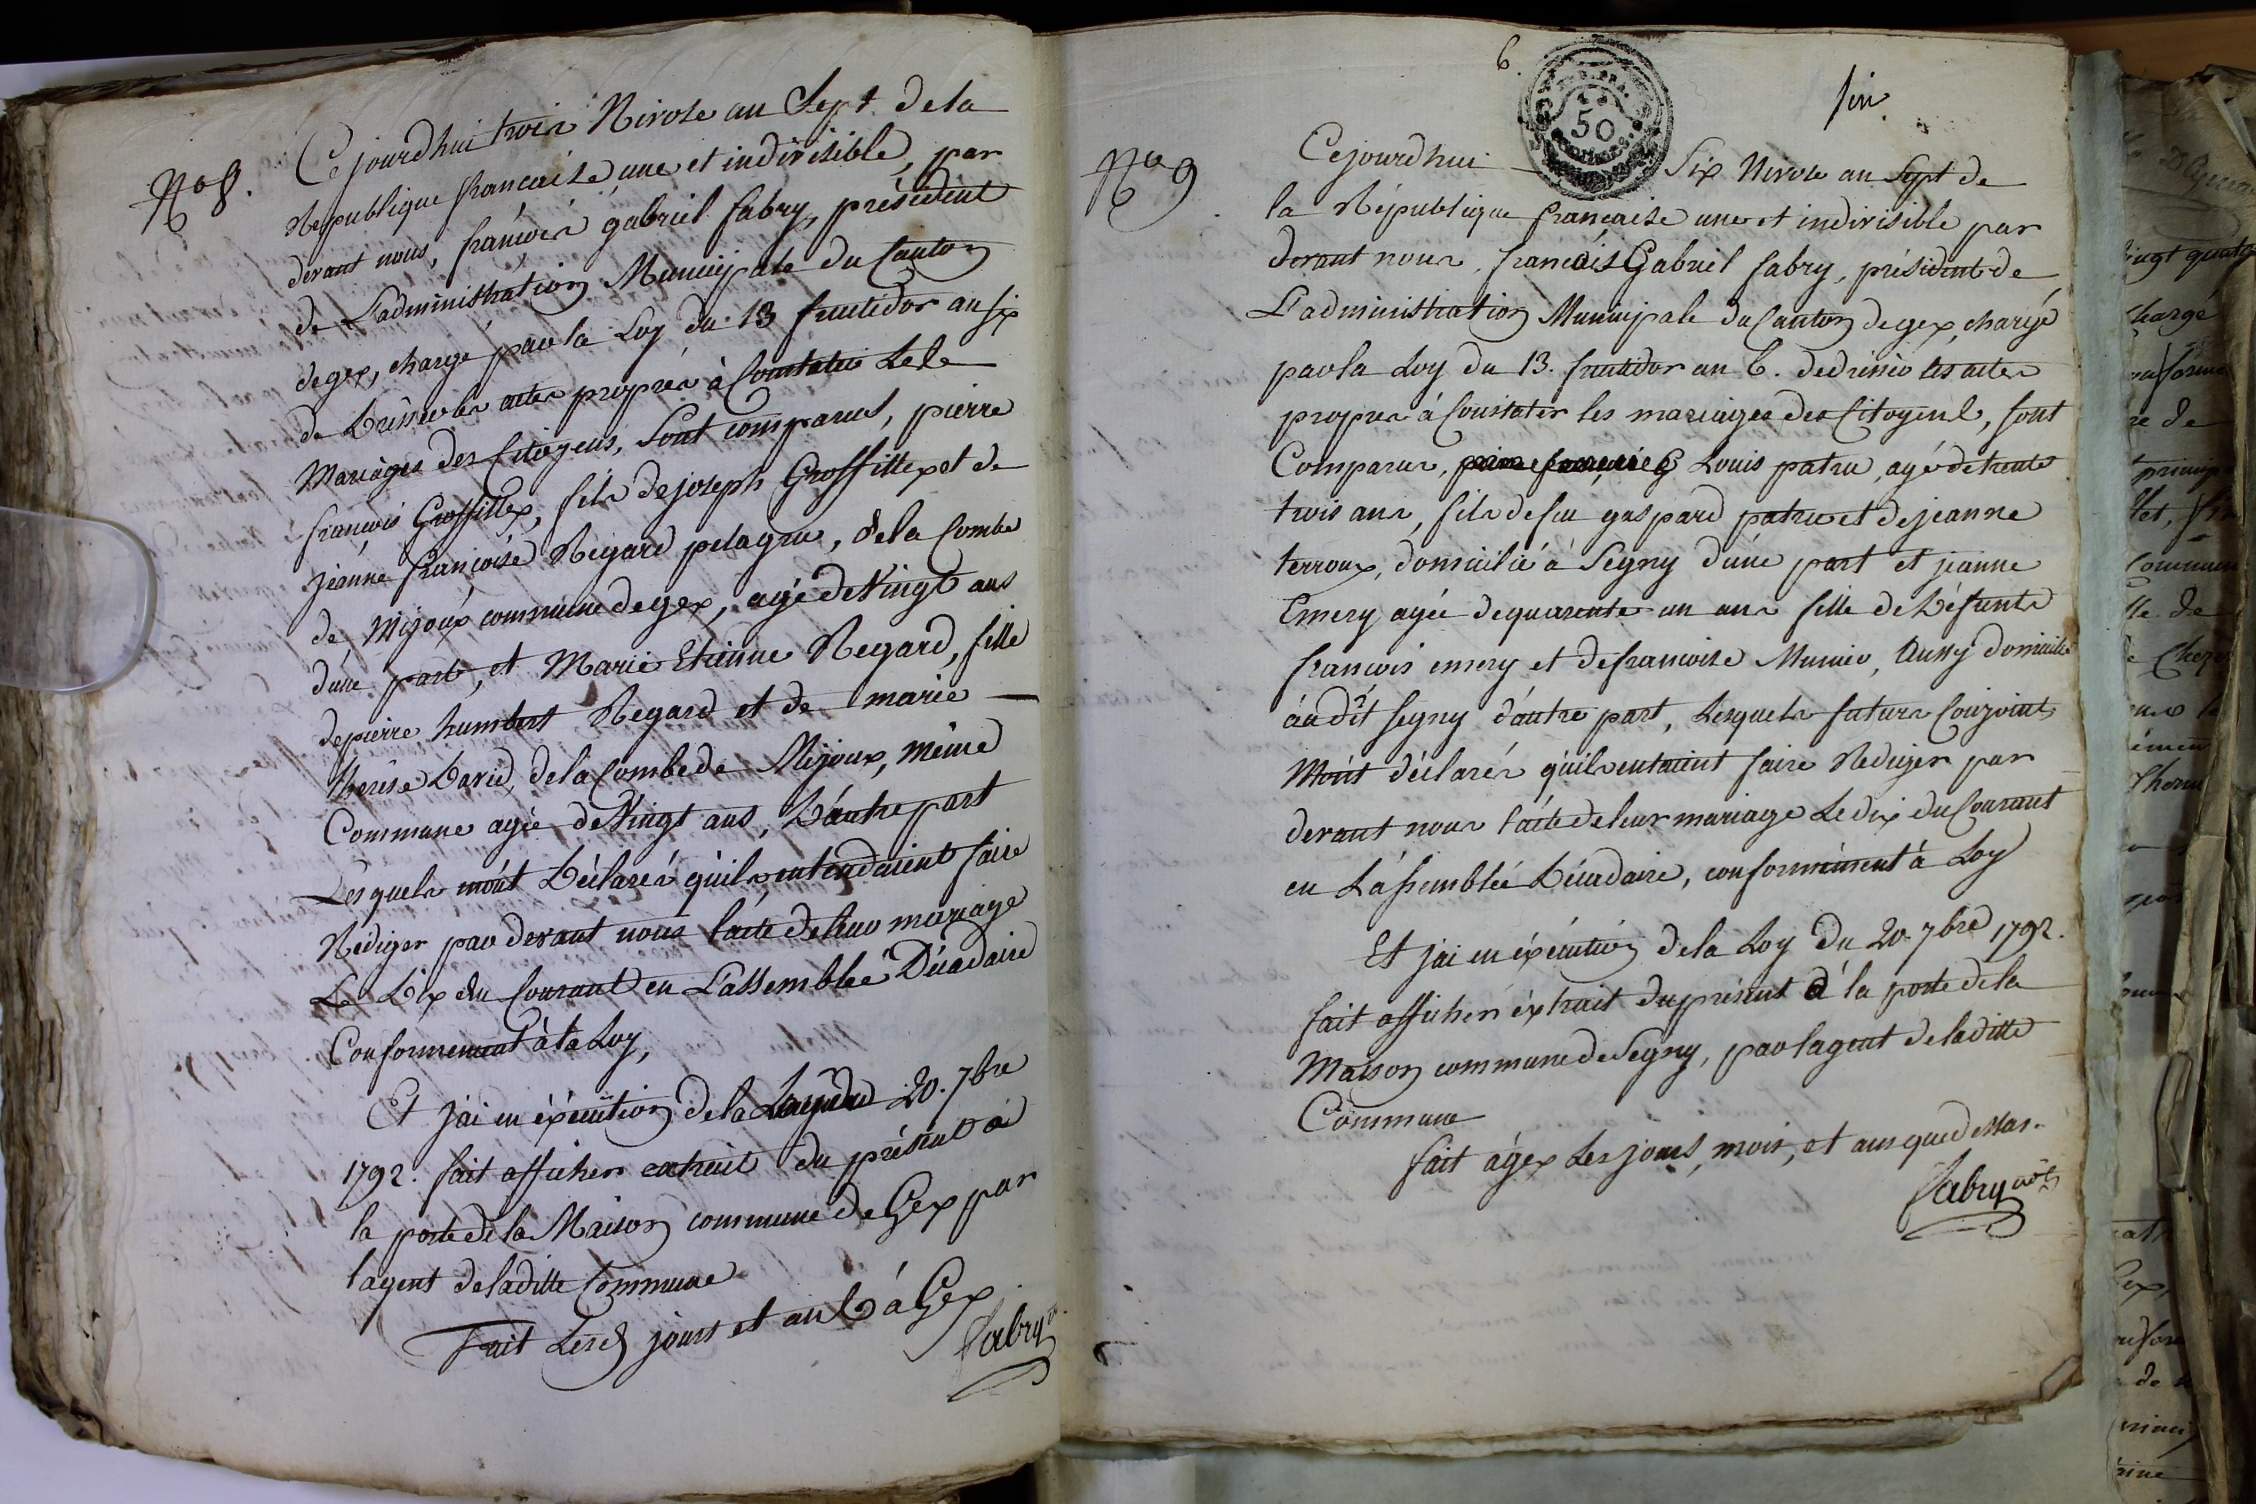 N.o 8.
Cejourdhui trois Nivose an Sept de la
Republique francaise une et indivisible, par
devant nous, francois gabriel fabry, président
de L'administration Municipale du Canton
de gex, chargé par la Loy du 13 fructidor an six
de Dresser les actes propres à Constater Les
Mariages des Citoyens, Sont comparus, pierre
françois Grossillex, fils de joseph Grossillex et de
jeanne françoise Regard pelagru, de la Combe
de Mijoux commune de gex, agé de Vingt ans
d'une part, et Marie Etienne Regard, fille
de pierre humbert Regard et de marie
therese David, de la Combe de Mijoux, même
Commune agée de Vingt ans, D'autre part
Lesquels m'ont Déclarés qu'ils entendaient faire
Rediger par devant nous l'acte de leur mariage
Le Dix du Courant en L'assemblée Décadaire
Conformement à la Loy,
Et j'ai en éxécution de la Loy du 20. 7bre
1792. fait afficher extrait du présent à
la porte de la Maison commune de Gex par
l'agent de laditte Commune
Fait Lesd jours et an à Gex
fabry
6.
50
six
N.o 9
Cejourdhui Six Nivose an Sept de
la République française une et indivisible par
devant nous, francois Gabriel fabry, président de
L'administration Municipale du Canton de gex, chargé
par la Loy du 13. fructidor an 6. de dresser les actes
propres à Constater les mariages des Citoyens, sont
Comparus, Louis patru, agé de trente
trois ans, fils de feu gaspard patru et de jeanne
terroux, domicilié à Segny d'une part et jeanne
Emery agée de quarente un ans fille de Défunts
francois emery et de francoise Munier, Aussy domicilié
au dit Segny d'autre part, Lesquels futurs Conjoints
M'ont déclarés qu'ils entendaient faire Rediger par
devant nous l'acte de leur mariage Le dix du Courant
en L'assemblée Décadaire, conformément à Loy
Et j'ai en éxécution de la Loy du 20. 7bre 1792.
fait afficher éxtrait du présent à la porte de la
Maison commune de Segny, par l'agent de laditte
Commune
fait à gex Les jours, mois, et ans que dessus.
fabry